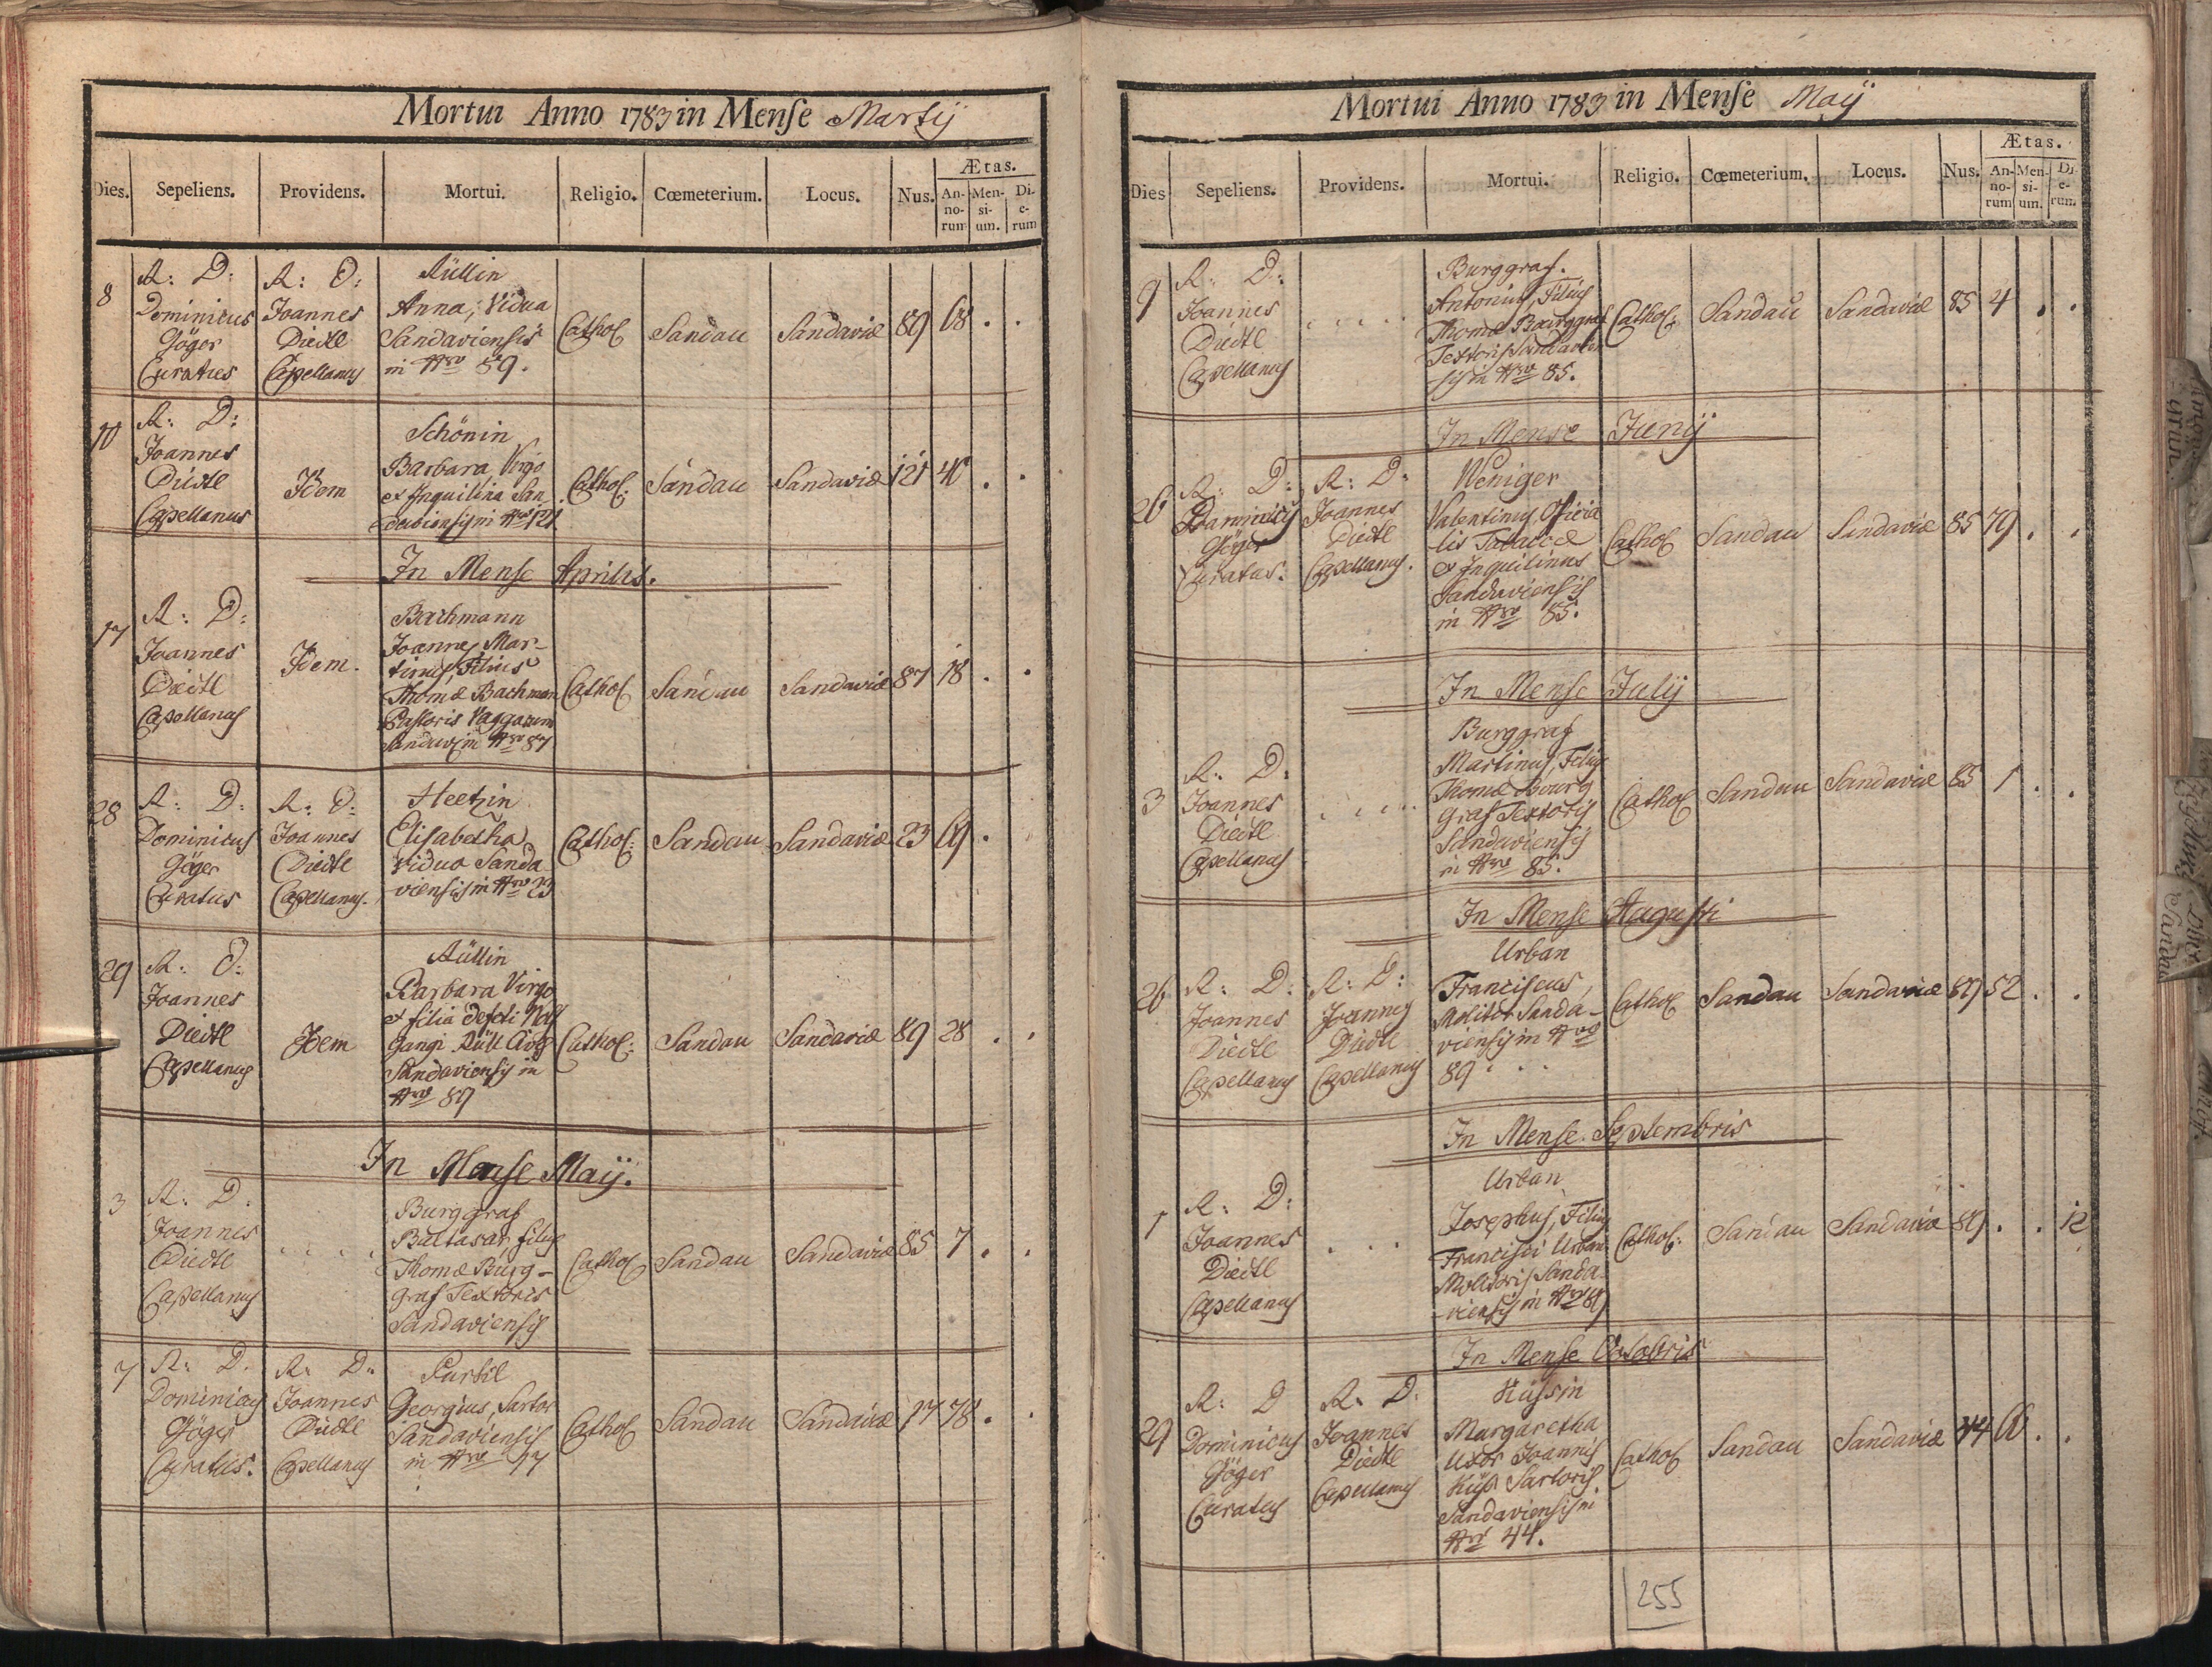 Mortui Anno 1783 in Menſe Martij
Dies. Sepeliens. Providens. Mortui. Religio. Cœmeterium. Locus. Nus. Ætas.
An-no-rum Men-si-um. Di-e-rum
8
R: D:
Dominicus
Göger
Curatus
R: D:
Joannes
Diedl
Capellanus
Rüllin
Anna, Vidua
Sandaviensis
in Nro 89.
Cathol Sandau Sandaviæ 89 68 . .
10
R: D:
Joannes
Diedl
Capellanus
Idem
Schönin
Barbara Virgo
et Inquilina San
daviensis in Nro 121
Cathol: Sandau Sandaviæ 121 40 . .
In Mense Aprilis.
17
R: D:
Joannes
Diedl
Capellanus
Idem.
Bachmann
Joannes Mar-
tinus, Filius
Thomæ Bachman
Pastoris Vaggarum
Sandav: in Nro 87
Cathol Sandau Sandaviæ 87 18 . .
28
R: D:
Dominicus
Göger
Curatus
R: D:
Joannes
Diedl
Capellanus.
Heetzin
Elisabetha
Vidua Sanda
viensis in Nro 23
Cathol: Sandau Sandaviæ 23 69 .
29
R: D:
Joannes
Diedl
Capellanus
Idem
Rüllin
Barbara Virgo
et filia defcti Wolf
gangi Rüll Civis
Sandaviensis in
Nro 89
Cathol: Sandau Sandaviæ 89 28 . .
In Mense Maij.
3
R: D:
Joannes
Diedl
Capellanus
. . . .
Burggraf
Baltasar filius
Thomæ Burg-
graf Textoris
Sandaviensis
Cathol Sandau Sandaviæ 85 7 . .
7
R: D.
Dominicus
Göger
Curatus.
R: D:
Joannes
Diedl
Capellanus
Georgius, Sartor
Sandaviensis
in Nro 17
Cathol Sandau Sandaviæ 17 78 . .
Mortui Anno 1783 in Menſe Maij
Dies Sepeliens. Providens. Mortui. Religio. Cœmeterium. Locus. Nus. Ætas.
An-no-rum Men-si-um. Di-e-rum.
9
R: D:
Joannes
Diedl
Capellanus
. . . .
Burggraf.
Antonius, Filius
Thomæ Burggraf
Textoris Sandavien
sis in Nro 85.
Cathol: Sandau Sandaviæ 85 4 . .
In Mense Junij
26
R: D:
Dominicus
Göger
Curatus.
R: D:
Joannes
Diedl
Capellanus.
Weniger
Valentinus, Officia
lis Tabaccæ
et Inquilinus
Sandaviensis
in Nro 85.
Cathol Sandau Sandaviæ 85 79 . .
In Mense Julij
3
R: D:
Joannes
Diedl
Capellanus
. . . .
Burggraf
Martinus, Filius
Thomæ Burg
graf Textoris
Sandaviensis
in Nro 85.
Cathol Sandau Sandaviæ 85 1 . .
In Mense Augusti
26
R: D:
Joannes
Diedl
Capellanus
R: D:
Joannes
Diedl
Capellanus
Urban
Franciscus,
Molitor Sanda-
viensis in Nro
89 . . .
Cathol Sandau Sandaviæ 89 52 . .
In Mense Septembris
1
R: D:
Joannes
Diedl
Capellanus
. . .
Urban
Josephus, Filius
Francisci Urban
Molitoris Sanda-
viensis in Nro 89
Cathol: Sandau Sandaviæ 89 . . 12
In Mense Octobris
29
R: D
Dominicus
Göger
Curatus
R: D:
Joannes
Diedl
Capellanus
Küssin
Margaretha
Uxor Joannis
Küss Sartoris
Sandaviensis in
Nro 44.
Cathol Sandau Sandaviæ 44 60 . .
255